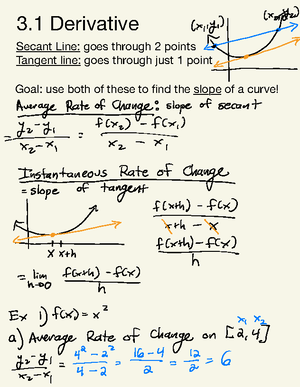 3.1 Derivative
(x₁,y₁)
(x₂,y₂)
Secant Line: goes through 2 points
Tangent line: goes through just 1 point
Goal: use both of these to find the slope of a curve!
Average Rate of Change: slope of secant
= y₂-y₁ / x₂-x₁ = f(x₂) - f(x₁) / x₂ - x₁
Instantaneous Rate of Change
= slope of tangent
f(x+h) - f(x) / x+h - x
x x+h
f(x+h) - f(x) / h
= lim h→0 f(x+h) - f(x) / h
Ex 1) f(x) = x²
x₁ x₂
a) Average Rate of Change on [2,4]
y₂-y₁ / x₂-x₁ = 4²-2² / 4-2 = 16-4 / 2 = 12 / 2 = 6